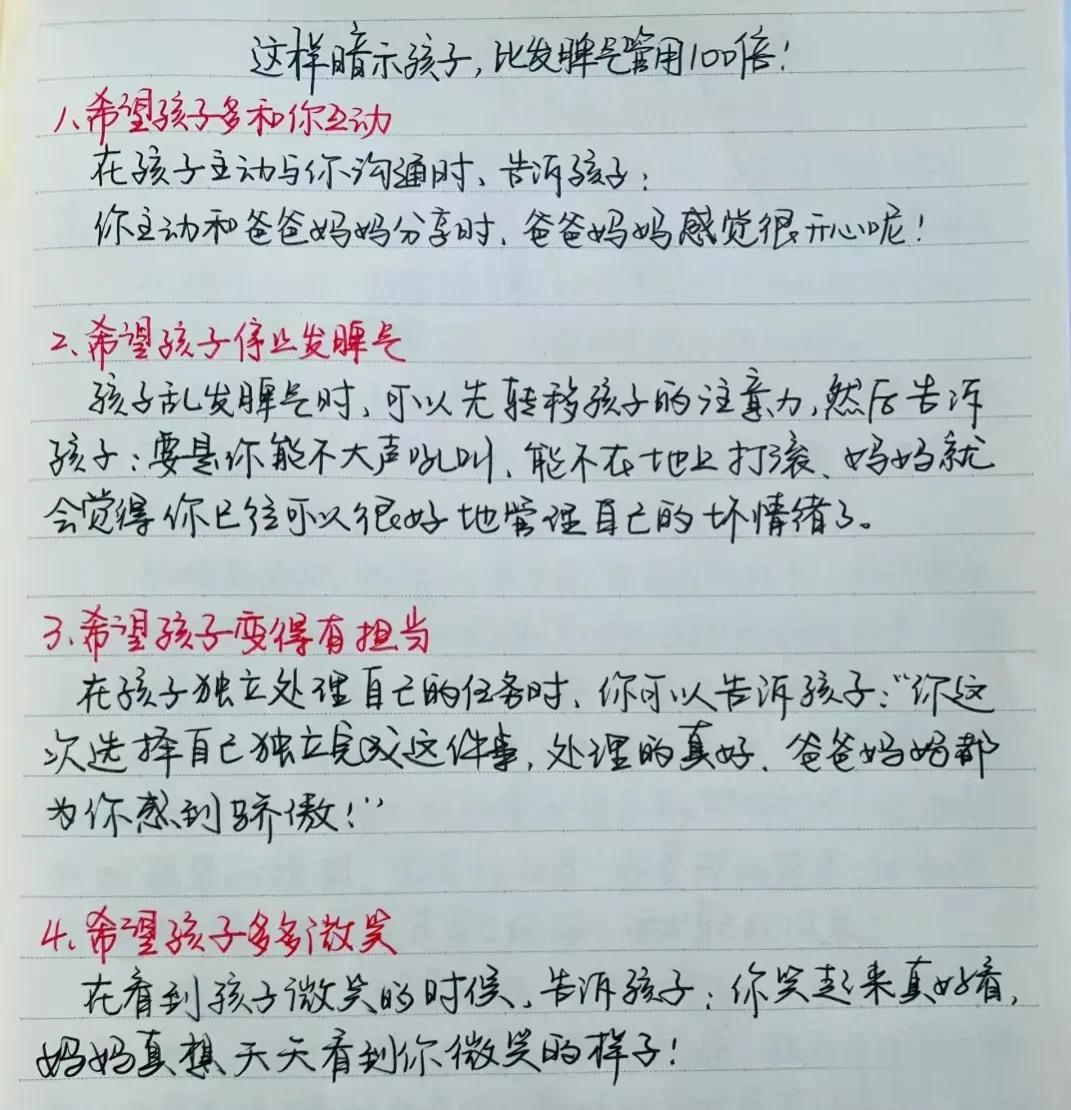 这样暗示孩子,比发脾气管用100倍!
1、希望孩子多和你互动
在孩子主动与你沟通时、告诉孩子:
你主动和爸爸妈妈分享时、爸爸妈妈感觉很开心呢!
2、希望孩子停止发脾气
孩子乱发脾气时,可以先转移孩子的注意力,然后告诉
孩子:要是你能不大声吼叫、能不在地上打滚、妈妈就
会觉得你已经可以很好地管理自己的坏情绪了。
3、希望孩子变得有担当
在孩子独立处理自己的任务时、你可以告诉孩子:“你这
次选择自己独立完成这件事,处理的真好、爸爸妈妈都
为你感到骄傲!”
4、希望孩子多多微笑
在看到孩子微笑的时候、告诉孩子:你笑起来真好看,
妈妈真想天天看到你微笑的样子!